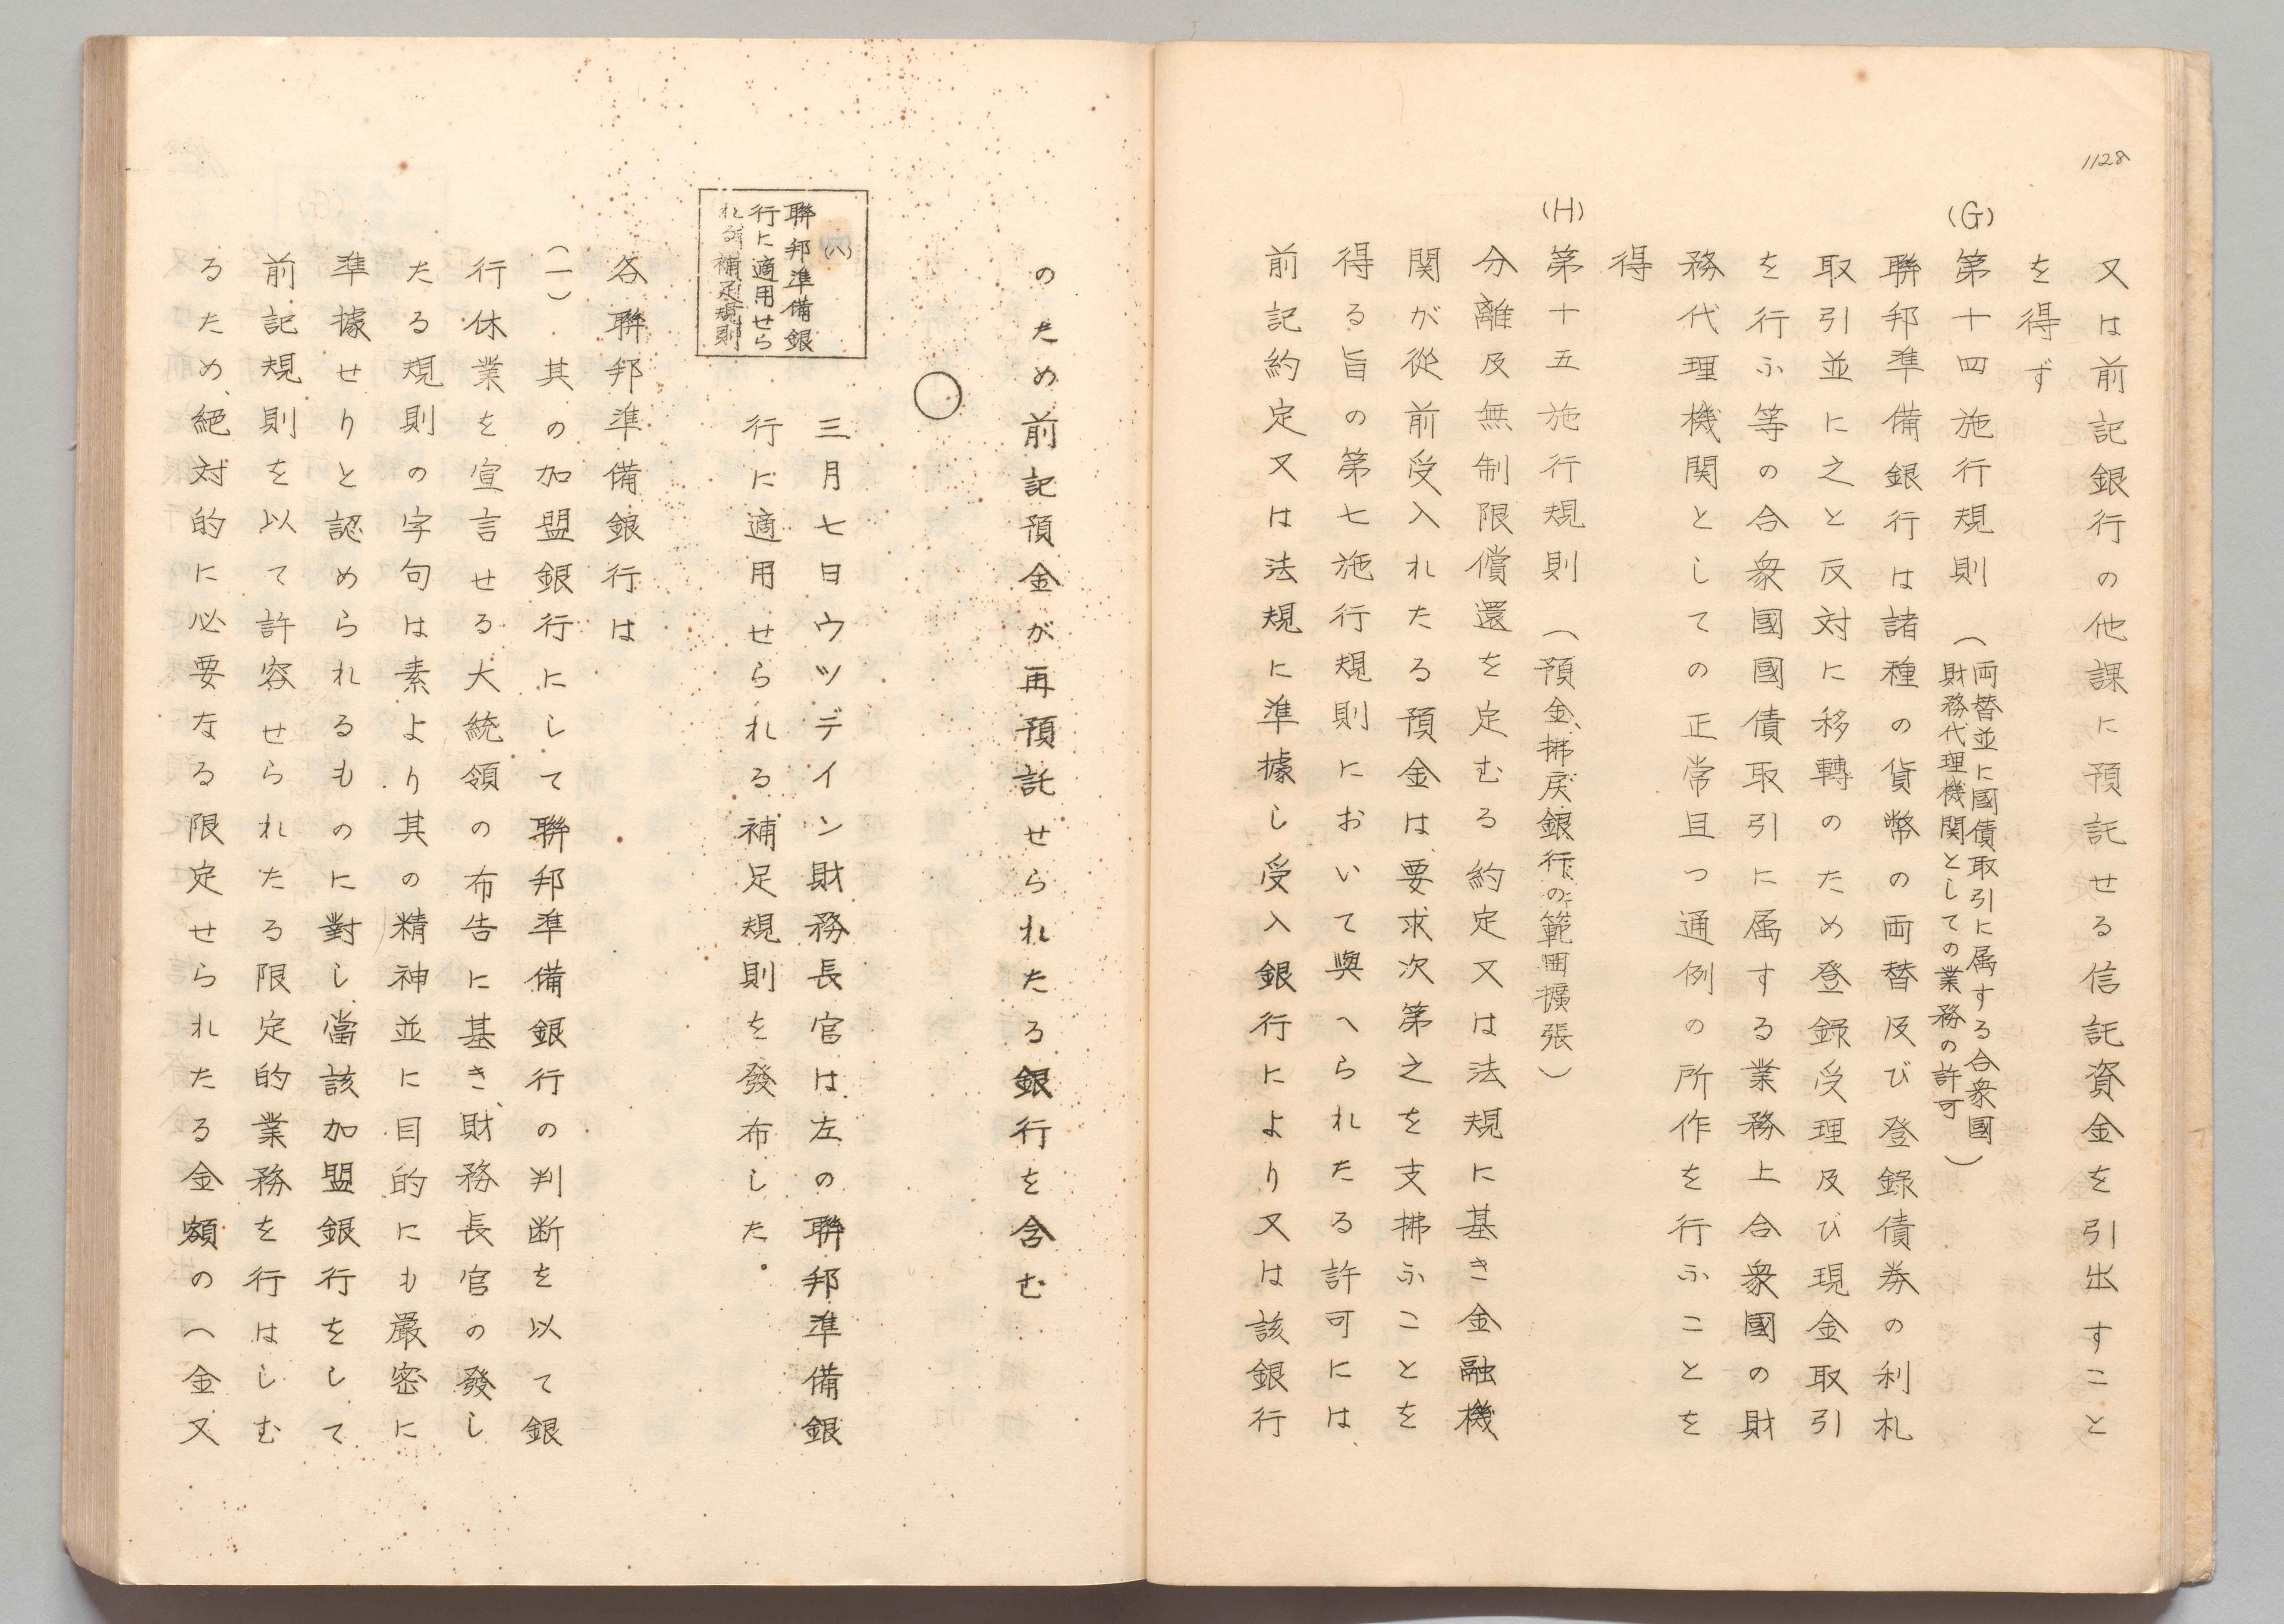 1128
又は前記銀行の他課に預託せる信託資金を引出すこと
を得ず
(G)
第十四施行規則（両替並に國債取引に属する合衆國
財務代理機関としての業務の許可）
聯邦準備銀行は諸種の貨幣の両替及び登錄債券の利札
取引並に之と反対に移轉のため登録受理及び現金取引
を行ふ等の合衆國國債取引に属する業務上合衆國の財
務代理機関としての正常且つ通例の所作を行ふことを
得
(H)
第十五施行規則（預金、拂戻銀行の範囲擴張）
分離及無制限償還を定むる約定又は法規に基き金融機
関が從前受入れたる預金は要求次第之を支拂ふことを
得る旨の第七施行規則において與へられたる許可には、
前記約定又は法規に準據し受入銀行により又は該銀行
のため前記預金が再預託せられたる銀行を含む
○
(八)
聯邦準備銀
行に適用せら
れる補足規則
三月七日ウツデイン財務長官は左の聯邦準備銀
行に適用せられる補足規則を發布した。
各聯邦準備銀行は
(一)其の加盟銀行にして聯邦準備銀行の判断を以て銀
行休業を宣言せる大統領の布告に基き、財務長官の發し
たる規則の字句は素より其の精神並に目的にも嚴密に
準據せりと認められるものに對し當該加盟銀行をして
前記規則を以て許容せられたる限定的業務を行はしむ
るため、絕対的に必要なる限定せられたる金額の（金又